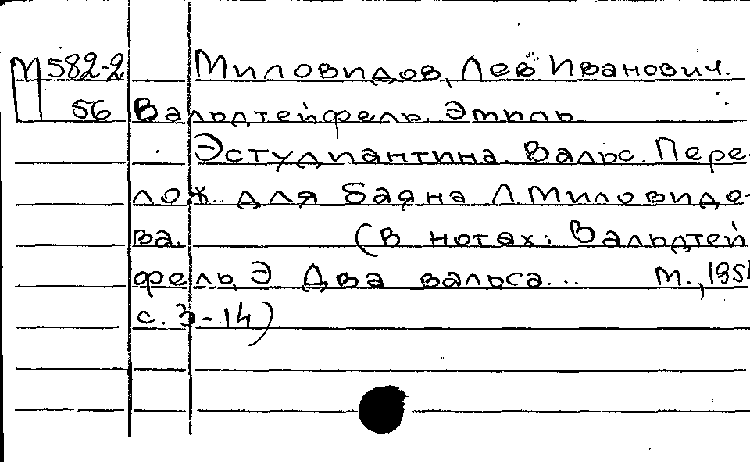 М582-2 Миловидов, Лев Иванович.
56 Вальдтейфель, Эмиль.
Эстудиантина. Вальс. Пере-
лож. для баяна Л. Миловидо-
ва. (В нотах: Вальдтей
фель, Э Два вальса... М., 1951
с. 3-14)